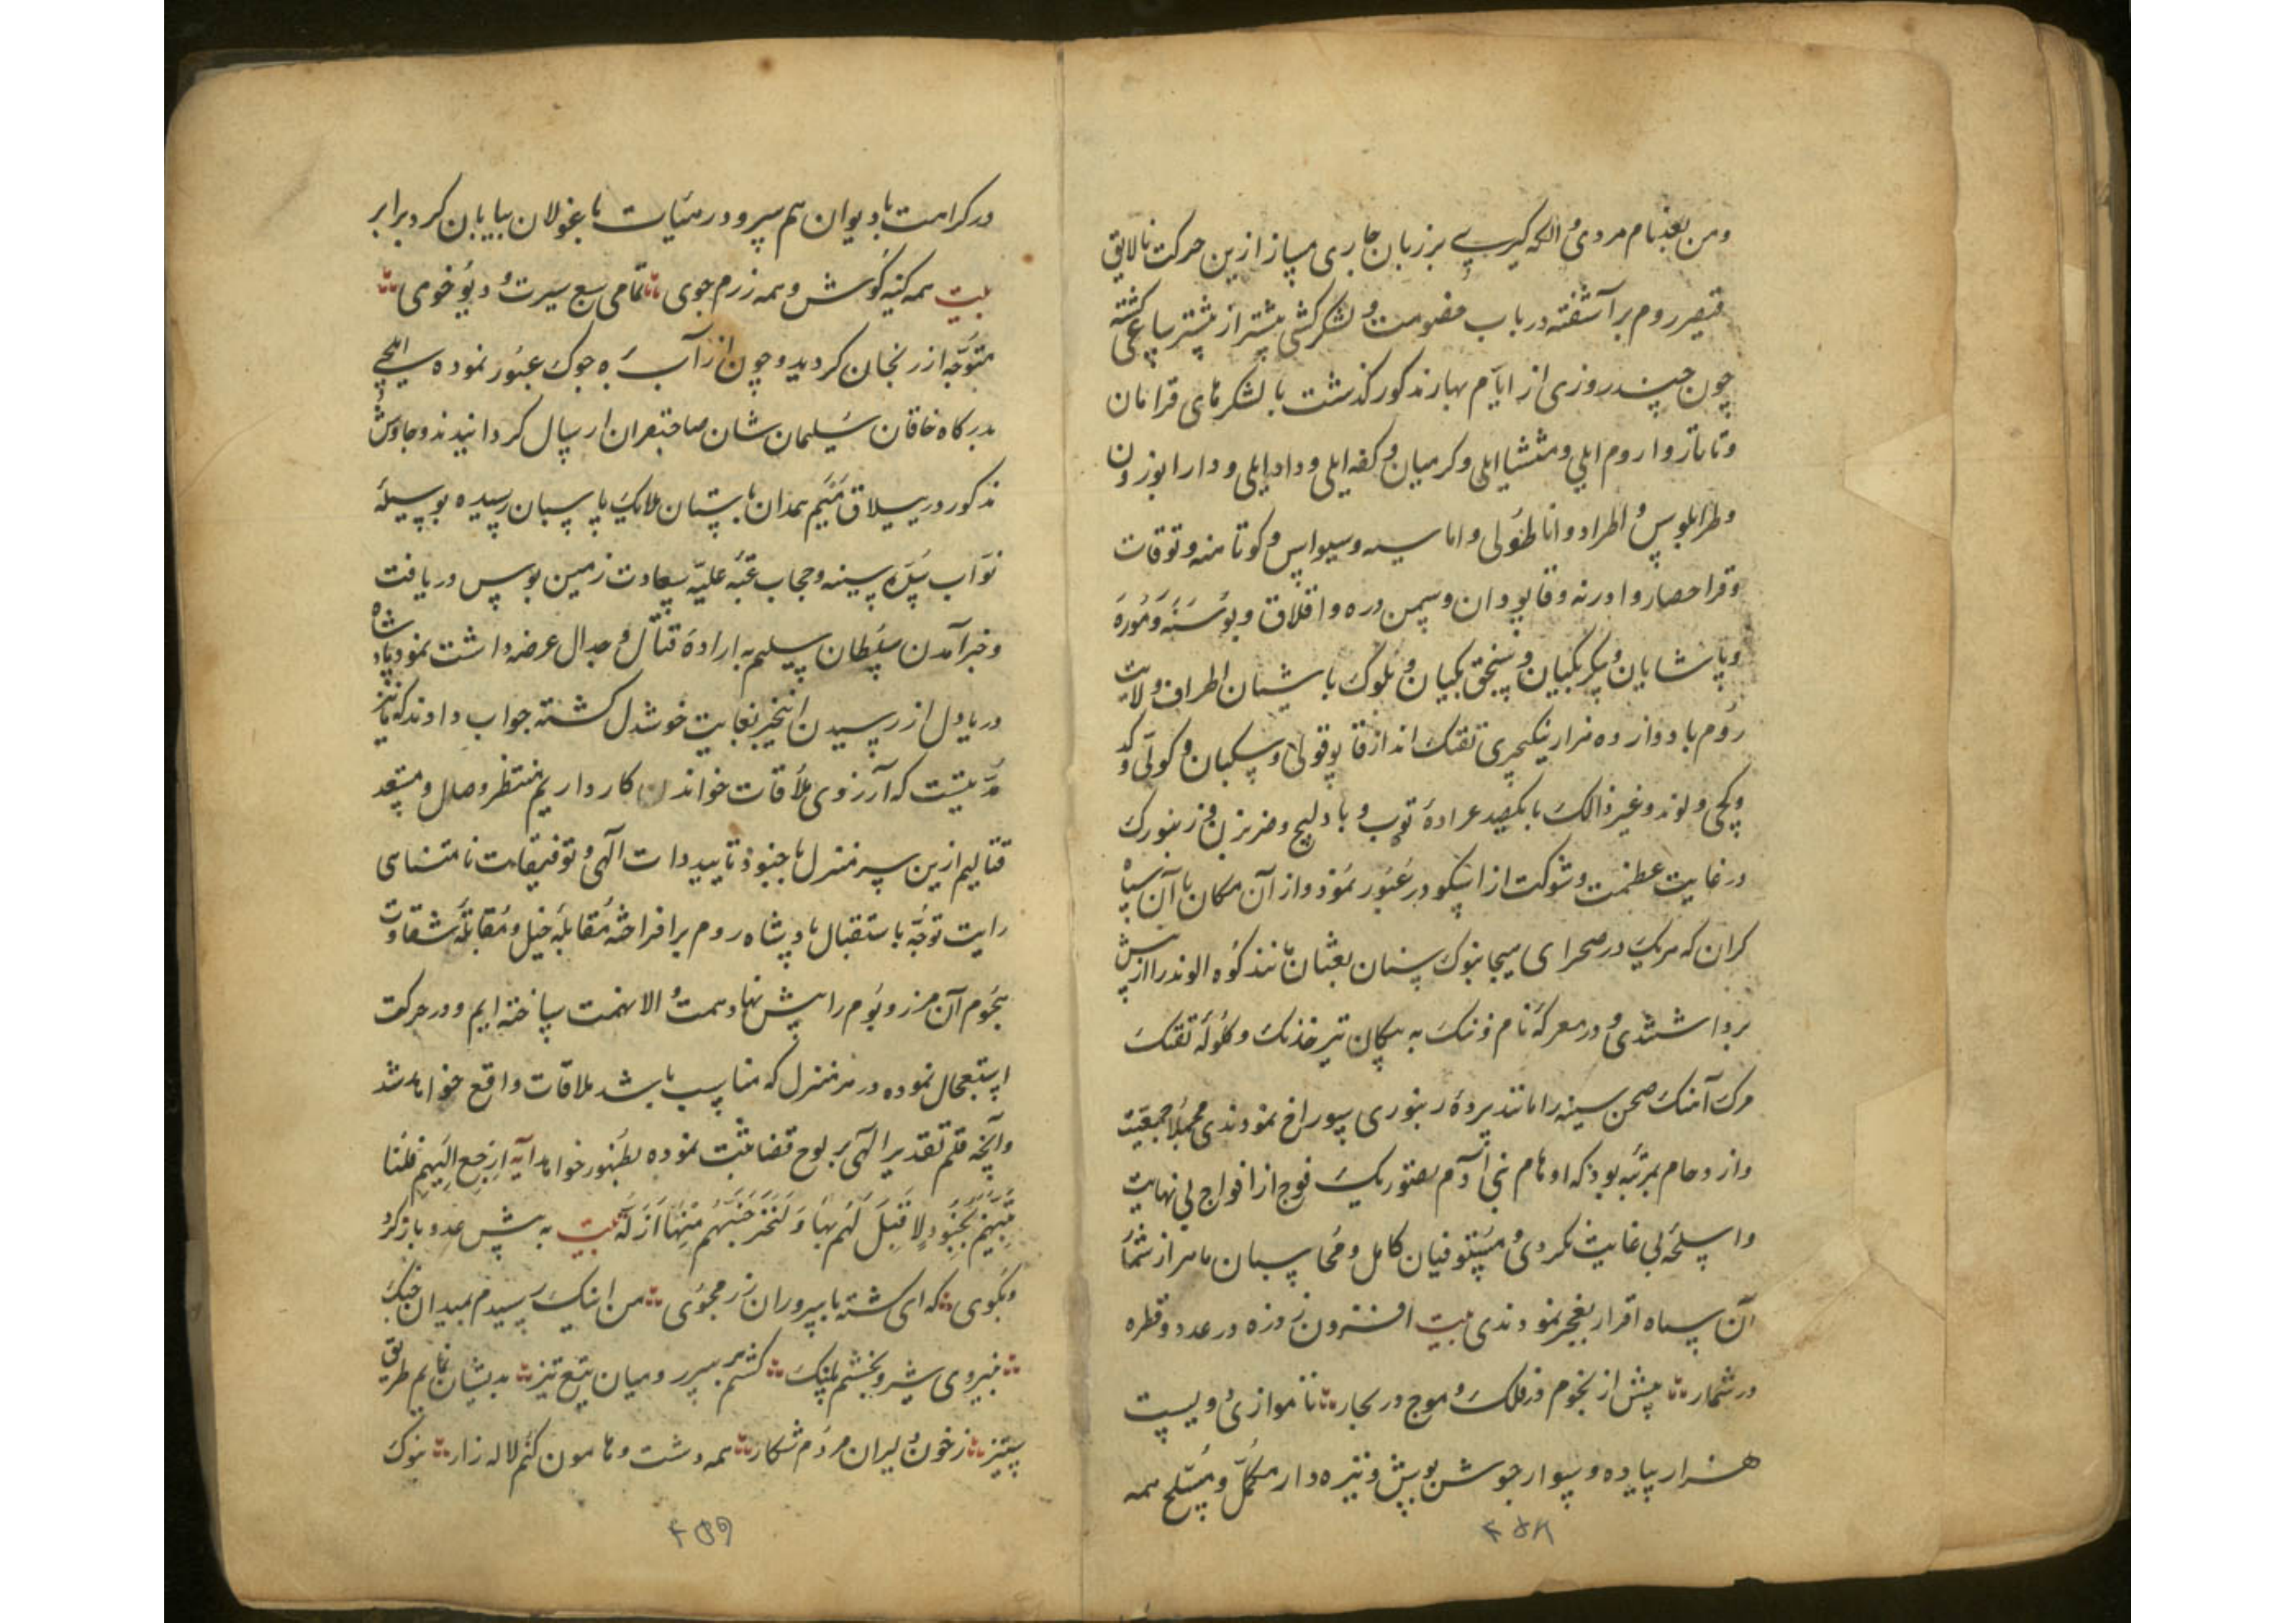 ومن بعد نام مردی و الکه گیری بر زبان جاری مساز ازین حرکت نالایق
قیصر روم برآشفته در باب خصومت و لشکر کشی بیشتر از پیشتر ساعی گشته
چون چند روزی از ایام بهار مذکور گذشت با لشکرهای قرامان
وتاتار و اروم ایلی و منتشا ایلی و کرمیان و کفه ایلی و داد ایلی و دارابوزون
وطرابلوس و اطراد و اناطولی و اماسیه و سیواس و کوتامنه و توقات
وقراحصار و ادرنه و قاپودان و سمن دره و افلاق و بوسنه و موره
وپاشایان و بکربکیان و سنجق بکیان و بلوک باشیان اطراف ولایت
روم با دوازده هزار ینکیچری تفنک انداز قاپوقولی و سکبان و کوللی و کد
وکچی و لوند و غیر ذالک با یکصد عراده توپ و بادلیج و ضربزن و زنبورک
در غایت عظمت و شوکت از اسکودر عبور نمود و از آن مکان با آن سپاه
کران که هریک در صحرای هیجا بنوک سنان بعثان مانند کوه الوند را از پیش
برداشتندی و در معرکه نام و ننک به پیکان تیر خدنک و کلوله تفنک
مرک آهنک صحن سینه را مانند پرده زنبوری سوراخ نمودندی مجملا جمعیت
وازدحام بمرتبه بود که اوهام بنی آدم تصور یک فوج از افواج بی نهایت
واسلحه بی غایت نکردی و مستوفیان کامل و محاسبان ماهر از شمار
آن سپاه اقرار بعجز نمودندی بیت افزون ز ذره در عدد و قطره
در شمار بیش از نجوم در فلک و موج در بحار تا موازی دویست
هزار پیاده و سوار جوشن پوش و نیزه دار مکمل و مسلح همه
۴۵۸
در کرامت با دیوان هم سر و در هیات با غولان بیابان کرد برابر
بیت همه کینه کوش و همه رزم جوی تمامی سبع سیرت و دیو خوی
متوجه ازرنجان کردید و چون از آب جوک عبور نموده ایلچی
بدرکاه خاقان سلیمان شان صاحبقران ارسال کردانیدند و چاوش
مذکور در ییلاق همدان بآستان ملایک پاسبان رسیده بوسیله
نواب سدره سینه و حجاب عتبه علیه سعادت زمین بوس دریافت
وخبر آمدن سلطان سلیم به اراده قتال و جدال عرضه داشت نمود پادشاه
دریادل از رسیدن این خبر بغایت خوشدل کشته جواب دادند که ما نیز
مدتیست که آرزوی ملاقات خواندکار داریم منتظر وصال و مستعد
قتالیم ازین سر منزل با جنود تاییدات الهی و توفیقات نامتناهی
رایت توجه باستقبال پادشاه روم برافراخته مقابله خیل و مقاتله شقاوت
هجوم آن مرز و بوم را پیش نهاد همت والا نهمت ساخته ایم و در حرکت
استعجال نموده در هر منزل که مناسب باشد ملاقات واقع خواهد شد
وآنچه قلم تقدیر الهی بر لوح قضا ثبت نموده بظهور خواهد آیه ارجع الیهم فلنا
تینهم بجنود لا قبل لهم بها و لنخرجنهم منها اذلة بیت به پیش عدو باز کرد
وبکوی که ای کشته با سروران رزمجوی من اینک رسیدم بمیدان جنک
بنیروی شیر و بخشم پلنک کشم بر سر رومیان تیغ تیز بدیشان نمایم طریق
ستیز ز خون دلیران مردم شکار همه دشت و هامون کنم لاله زار بنوک
۴۵۹